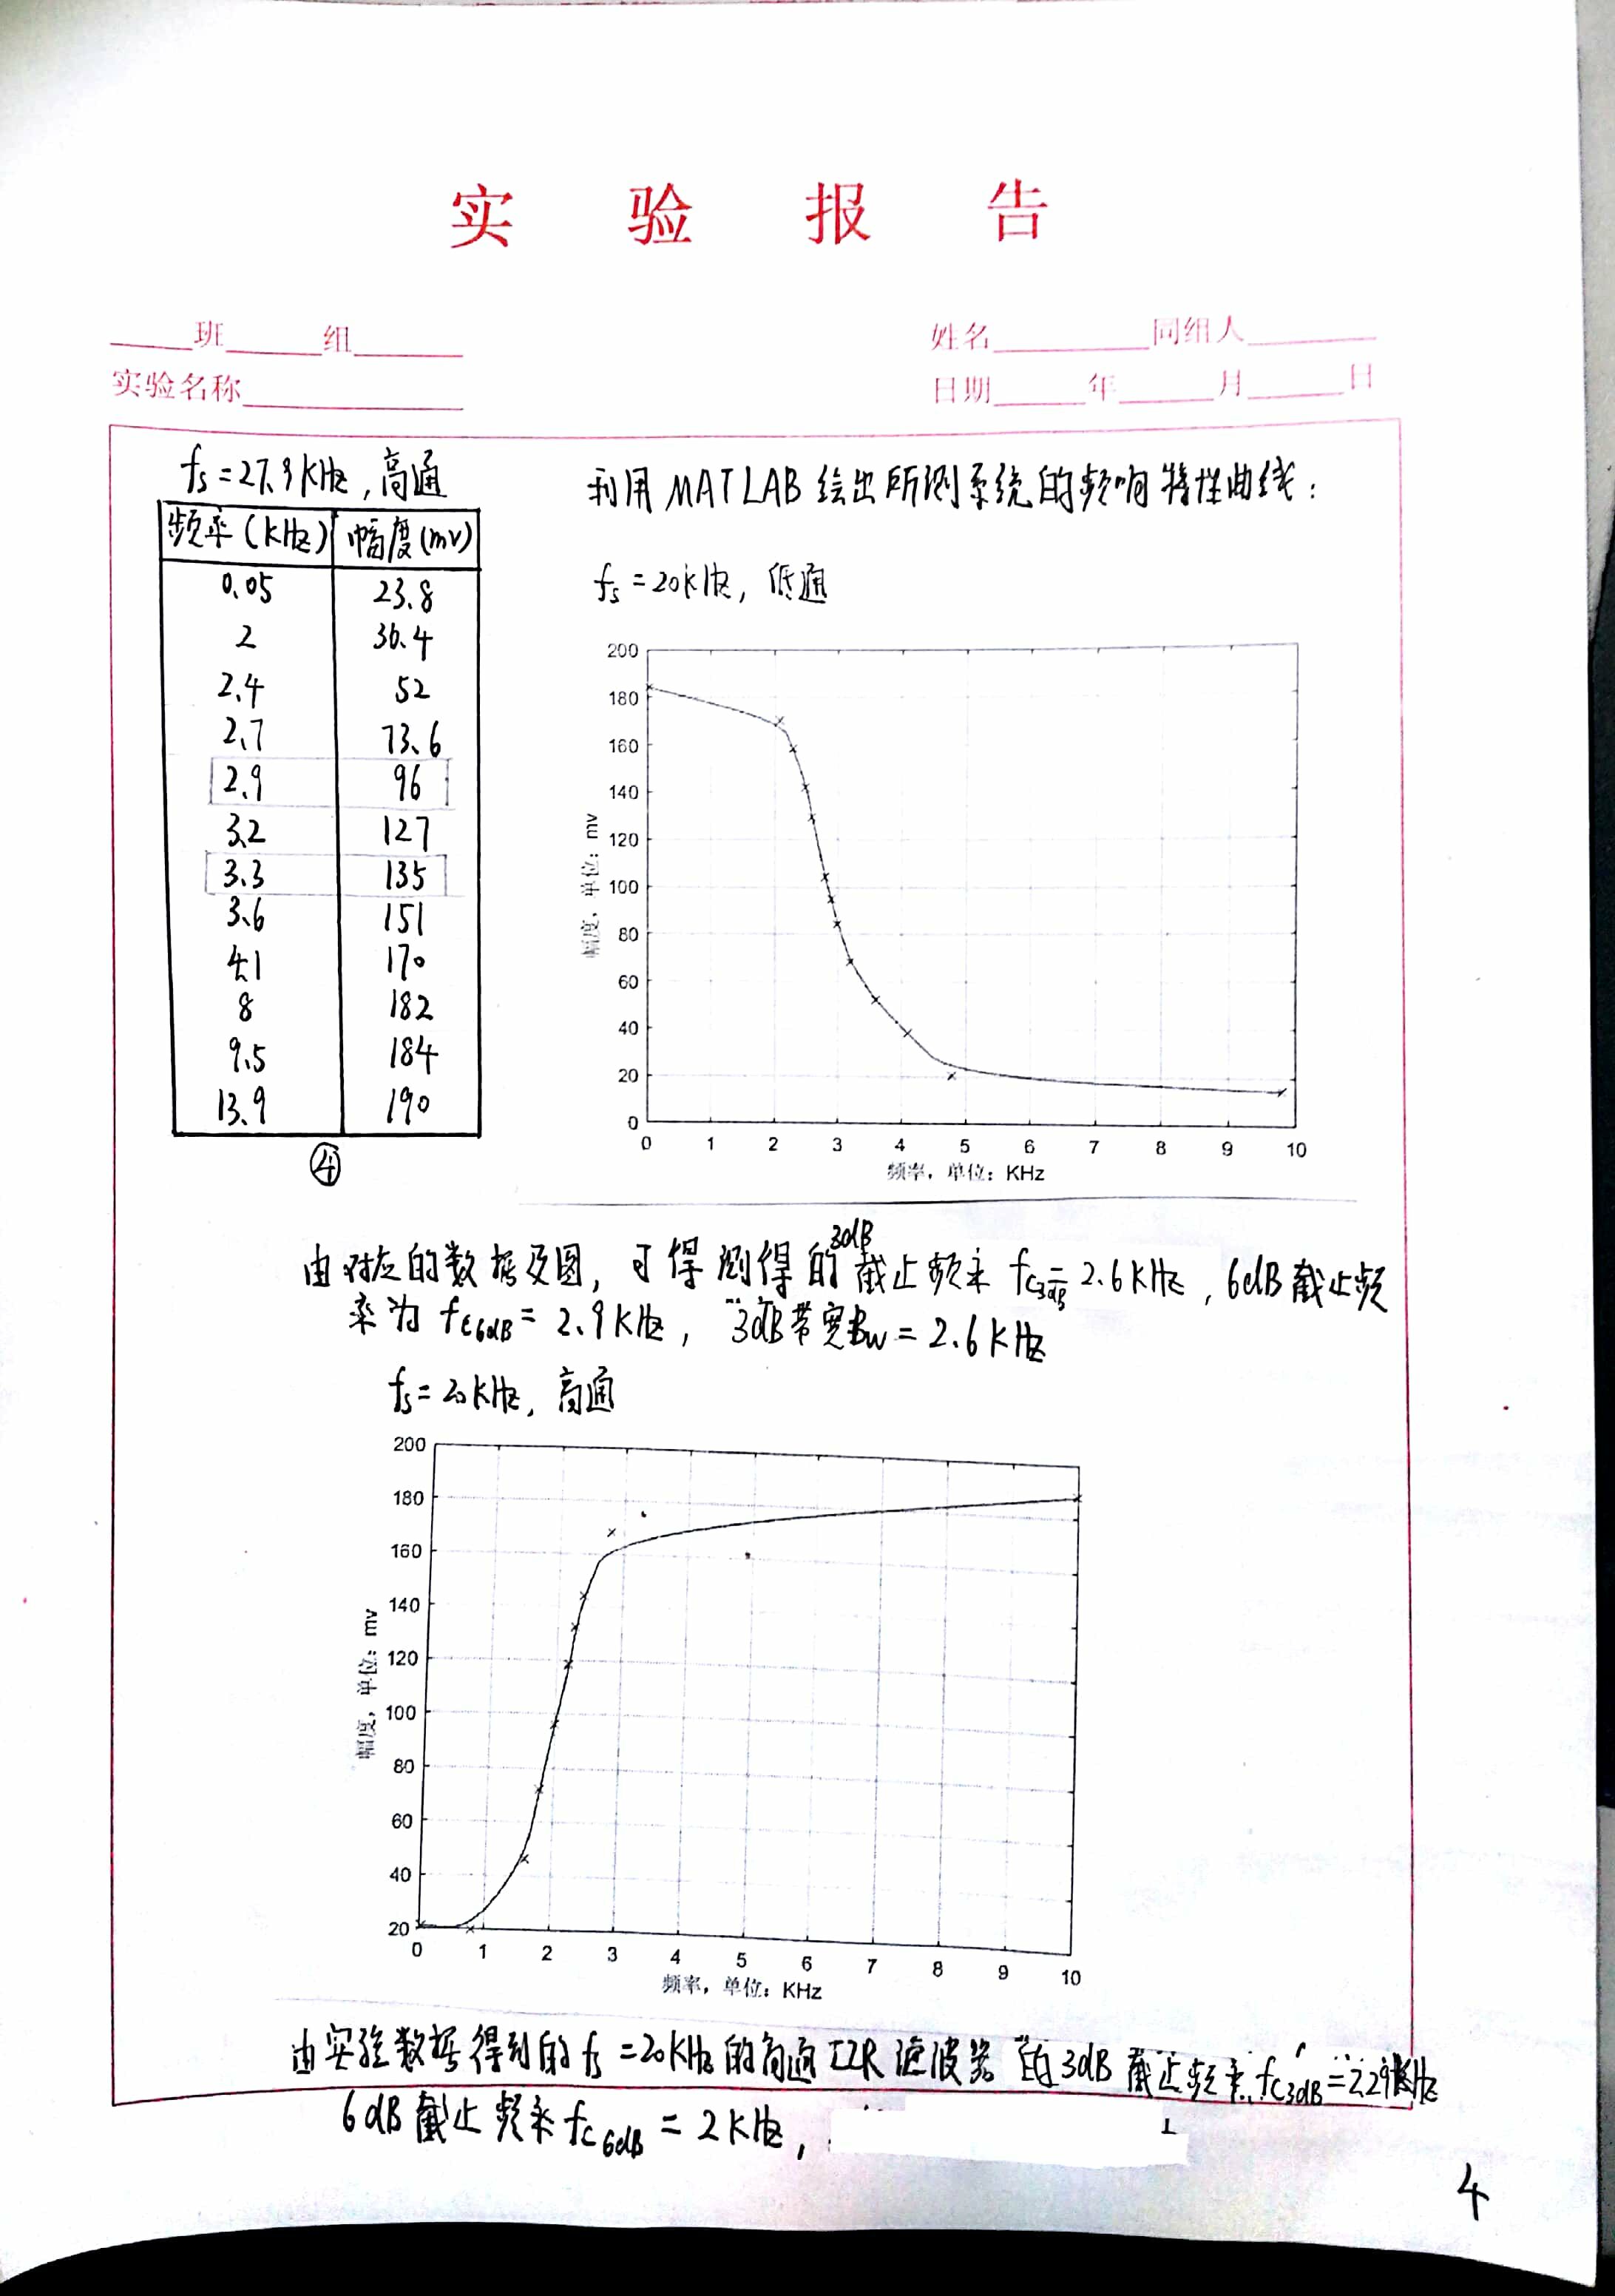 实 验 报 告
班 组 姓名 同组人
实验名称 日期 年 月 日
fs=27.9KHz,高通
频率(KHz) 幅度(mv)
0.05 23.8
2 36.4
2.4 52
2.7 73.6
2.9 96
3.2 127
3.3 135
3.6 151
4.1 170
8 182
9.5 184
13.9 190
④
利用MATLAB绘出所测系统的频响特性曲线:
fs=20kHz,低通
200
180
160
140
120
100
80
60
40
20
0
幅度,单位:mv
0 1 2 3 4 5 6 7 8 9 10
频率,单位:KHz
由对应的数据及图,可得测得的3dB截止频率fc3dB=2.6KHz,6dB截止频
率为fc6dB=2.9KHz,3dB带宽Bw=2.6KHz
fs=20kHz,高通
200
180
160
140
120
100
80
60
40
20
幅度,单位:mv
0 1 2 3 4 5 6 7 8 9 10
频率,单位:KHz
由实验数据得到的fs=20KHz的高通IIR滤波器的3dB截止频率fc3dB=2.29KHz
6dB截止频率fc6dB=2KHz,
4